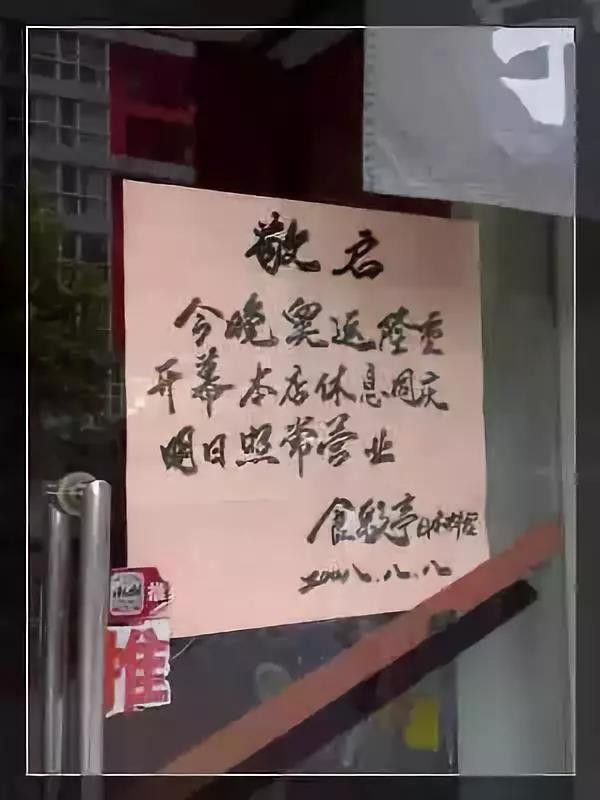 敬启
今晚奥运隆重
开幕本店休息同庆
明日照常营业
食彩亭日本料理
2008.八.八
推
推